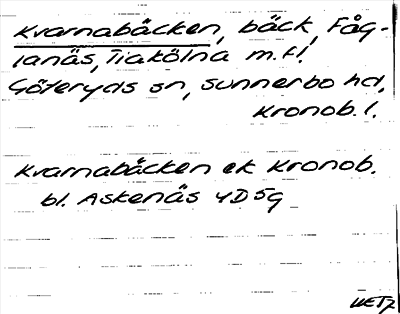 Kvarnabäcken, bäck, Fåg-
lanäs, Tiakölna m.fl.
Göteryds sn, Sunnerbo hd,
Kronob. l.
Kvarnabäcken ek Kronob.
bl. Askenäs 4D5g